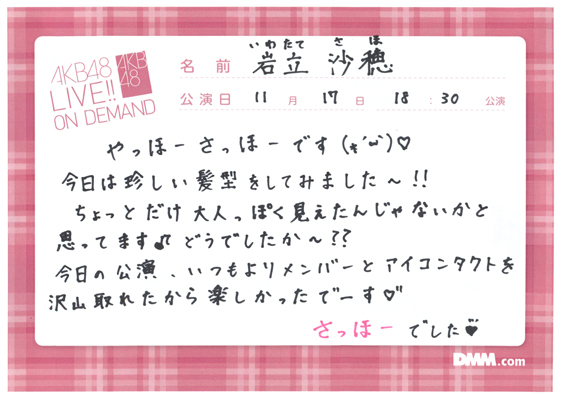 AKB48
LIVE!!
ON DEMAND
AKB
48
いわたて さほ
名前 岩立 沙穂
公演日 11月 17日 18:30 公演
やっほーさっほーです(*´ω`)♡
今日は珍しい髪型をしてみました〜!!
ちょっとだけ大人っぽく見えたんじゃないかと
思ってます♪どうでしたか〜??
今日の公演、いつもよりメンバーとアイコンタクトを
沢山取れたから楽しかったでーす♡
さっほーでした♥
DMM.com